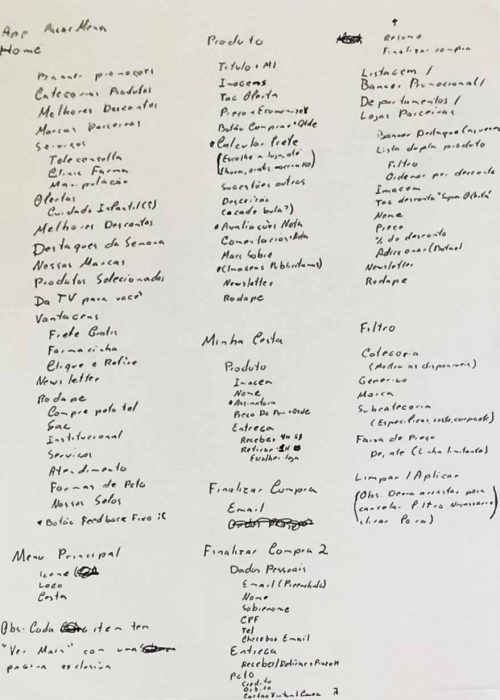 App Pague Menos
Home
Banner promoções
Categorias Produtos
Melhores Descontos
Marcas Parceiras
Serviços
Teleconsulta
Clinic Farma
Manipulação
Ofertas
Cuidado Infantil(s)
Melhores Descontos
Destaques da Semana
Nossas Marcas
Produtos Selecionados
Da TV para você
Vantagens
Frete Gratis
Farmacinha
Clique e Retire
Newsletter
Rodape
Compre pelo tel
Sac
Institucional
Serviços
Atendimento
Formas de Pgto
Nossos Selos
• Botão Feedback Fixo :(
Menu Principal
Icone
Logo
Cesta
Obs. Cada item tem
"Ver Mais" com uma
pagina exclusiva
Produto
Titulo + MS
Imagens
Tag Oferta
Preço + Economize X
Botão Comprar + Qtde
• Calcular Frete
(Escolhe a loja, até
Sugestões outras
Descrição
(cade bula?)
• Avaliações Nota
Comentarios + Nota
Mais Sobre
• (Imagens Publicitarias)
Newsletter
Rodape
Minha Cesta
Produto
Imagem
Nome
• Assinatura
Preço De Por + Qtde
Entrega
Receber 4H
Retirar 1H
Escolher loja
Finalizar Compra
Email
Finalizar Compra 2
Dados Pessoais
Email (Preenchido)
Nome
Sobrenome
CPF
Tel
Checkbox Email
Entrega
Receber/Retirar + Prazo
Pgto
Credito
Debito
Resumo
Finalizar compra
Listagem /
Banner Promocional /
Departamentos /
Lojas Parceiras
Banner Destaque
Lista dupla produto
Filtro
Ordenar por desconto
Imagem
Tag desconto "Super Oferta"
Nome
Preço
% de desconto
Adicionar (Botao)
Newsletter
Rodape
Filtro
Categoria
(Mostra as disponiveis)
Generico
Marca
Subcategoria
Faixa de Preço
De, até (Linha limitante)
Limpar / Aplicar
(Obs Devia arrastar para
cancelar Filtro. Necessario
clicar Fora)